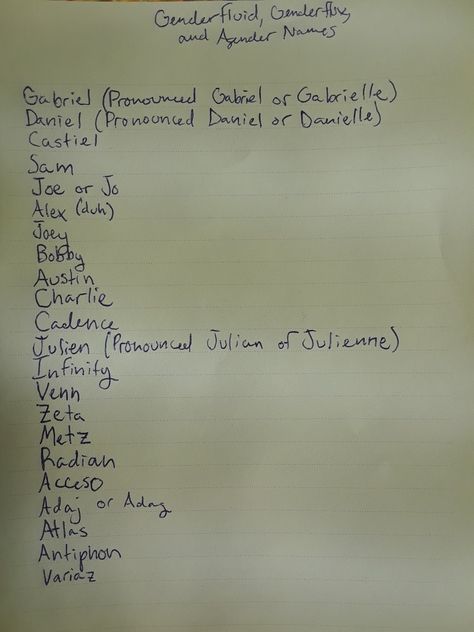 Genderfluid, Genderflux,
and Agender Names
Gabriel (Pronounced Gabriel or Gabrielle)
Daniel (Pronounced Daniel or Danielle)
Castiel
Sam
Joe or Jo
Alex (duh)
Joey
Bobby
Austin
Charlie
Cadence
Julien (Pronounced Julian or Julienne)
Infinity
Venn
Zeta
Metz
Radian
Acceso
Adaj or Adag
Atlas
Antiphon
Variaz